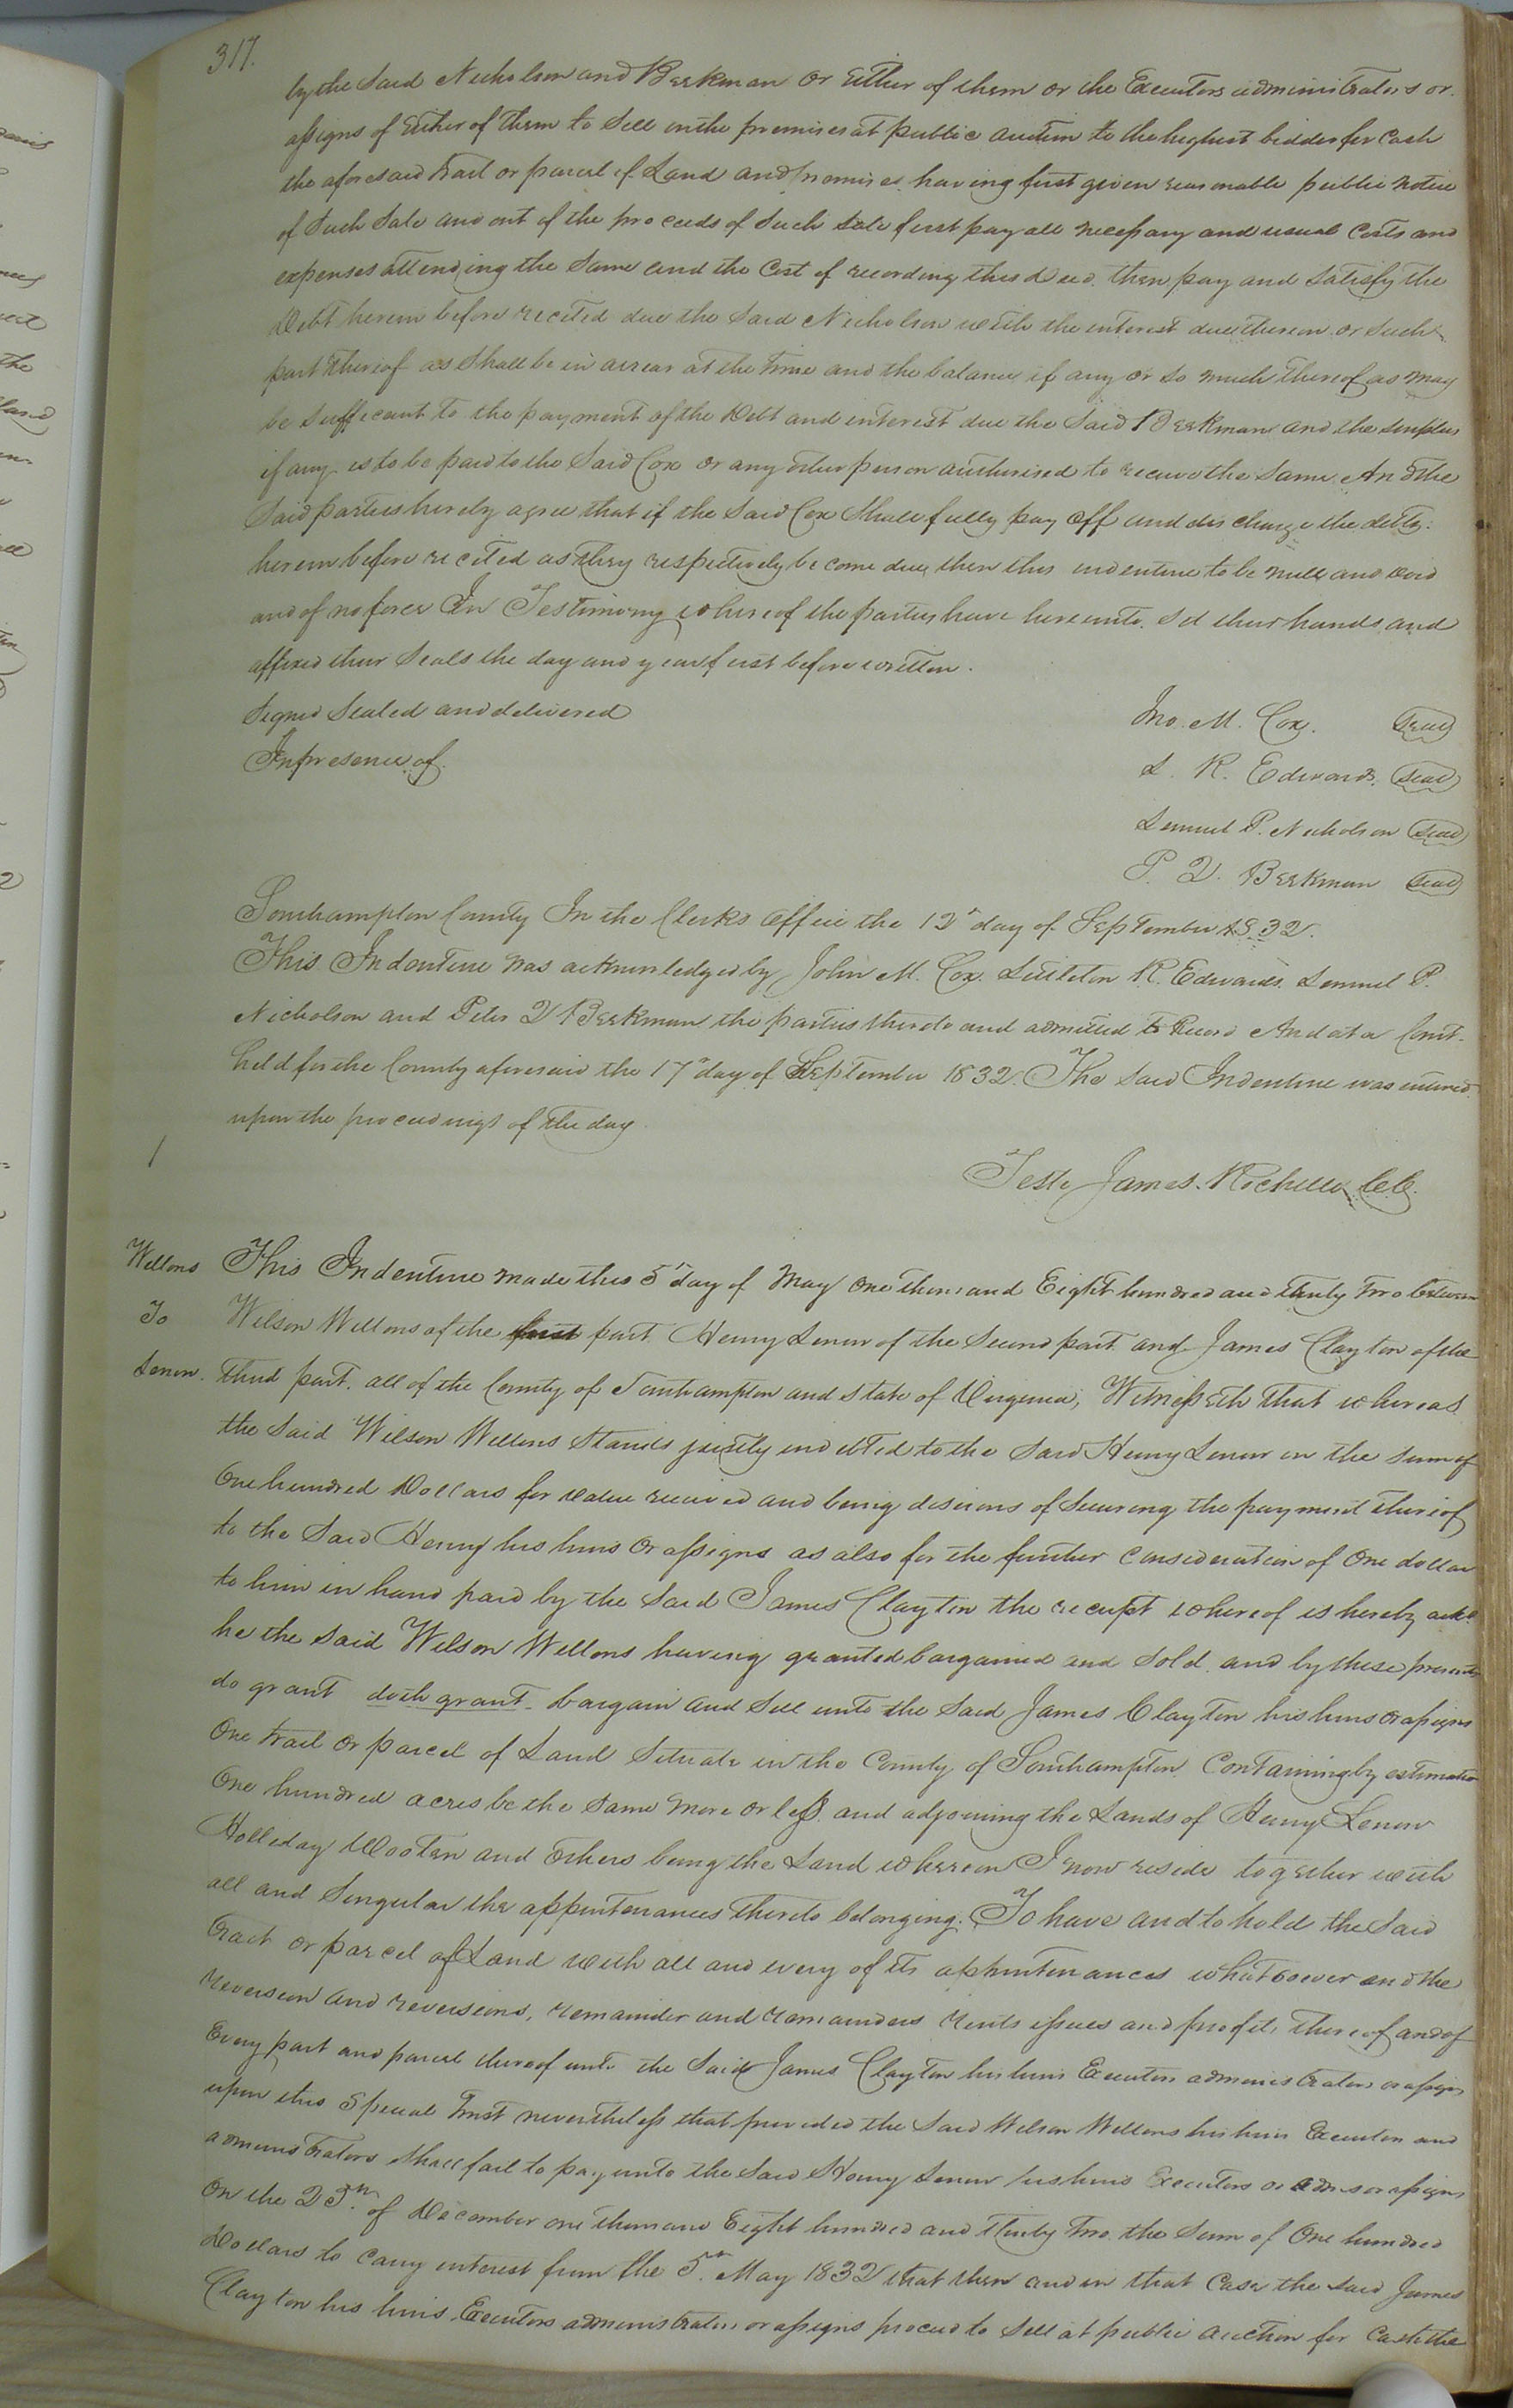 317.
by the Said Nicholson and Beekman or Either of them or the Executors administrators or
assigns of Either of them to Sell on the premises at public auction to the highest bidder for Cash
the aforesaid Tract or parcel of Land and premises having first given reasonable public notice
of Such Sale and out of the proceeds of Such Sale first pay all necessary and usual Costs and
expenses attending the Same and the Cost of recording this deed. then pay and Satisfy the
Debt herein before recited due the Said Nicholson with the interest due thereon or Such
part thereof as Shall be in arrear at the time and the balance if any or so much thereof as may
be Sufficient to the payment of the Debt and interest due the Said Beekman and the surplus
if any is to be paid to the Said Cox or any other person authorised to receive the Same. And the
Said parties hereby agree that if the Said Cox Shall fully pay off and discharge the debts
herein before recited as they respectively become due, then this indenture to be null and void
and of no force In Testimony whereof the parties have hereunto Set their hands and
affixed their Seals the day and year first before written.
Signed Sealed and delivered
In presence of.
Jno. M. Cox. Seal
L. R. Edwards. Seal
Lemuel P. Nicholson Seal
P. V. Beekman Seal
Southampton County In the Clerks office the 12th day of September 1832.
This Indenture was acknowledged by John M. Cox. Littleton R. Edwards. Lemuel P.
Nicholson and Peter V Beekman the parties thereto and admitted to Record And at a Court
held for the County aforesaid the 17th day of September 1832. The Said Indenture was entered
upon the proceedings of the day.
Teste James. Rochelle, C.C.
Wellons
To
Lenow.
This Indenture made this 5th day of May one thousand Eight hundred and thirty two between
Wilson Wellons of the first part Henry Lenow of the Second part and James Clayton of the
third part. all of the County of Southampton and State of Virginia, Witnesseth that whereas
the Said Wilson Wellons Stands justly indebted to the Said Henry Lenow in the Sum of
One hundred Dollars for value received and being desirous of Securing the payment thereof
to the Said Henry his heirs or assigns as also for the further Consideration of One dollar
to him in hand paid by the Said James Clayton the receipt whereof is hereby ackd
he the Said Wilson Wellons having granted bargained and Sold. and by these presents
do grant doth grant. bargain and Sell unto the Said James Clayton his heirs or assigns
One tract or parcel of Land Situate in the County of Southampton Containing by estimation
One hundred acres be the Same more or less. and adjoining the Lands of Henry Lenow
Holliday Wooten and others being the Land whereon I now reside together with
all and Singular the appurtenances thereto belonging. To have and to hold the Said
tract or parcel of Land with all and every of its appurtenances whatsoever and the
reversion and reversions, remainder and remainders rents issues and profits thereof and of
Every part and parcel thereof unto the Said James Clayton his heirs Executors administrators or assigns
upon this Special Trust nevertheless that provided the Said Wilson Wellons his heirs Executors and
administrators Shall fail to pay unto the Said Henry Lenow his heirs Executors or adms or assigns
On the 25th of December one thousand Eight hundred and thirty two. the Sum of One hundred
Dollars to carry interest from the 5th May 1832 that then and in that Case the Said James
Clayton his heirs Executors administrators or assigns proceed to Sell at public auction for Cash the